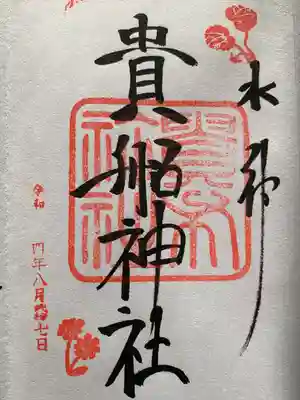 水神
貴船神社
令和
四年八月七日